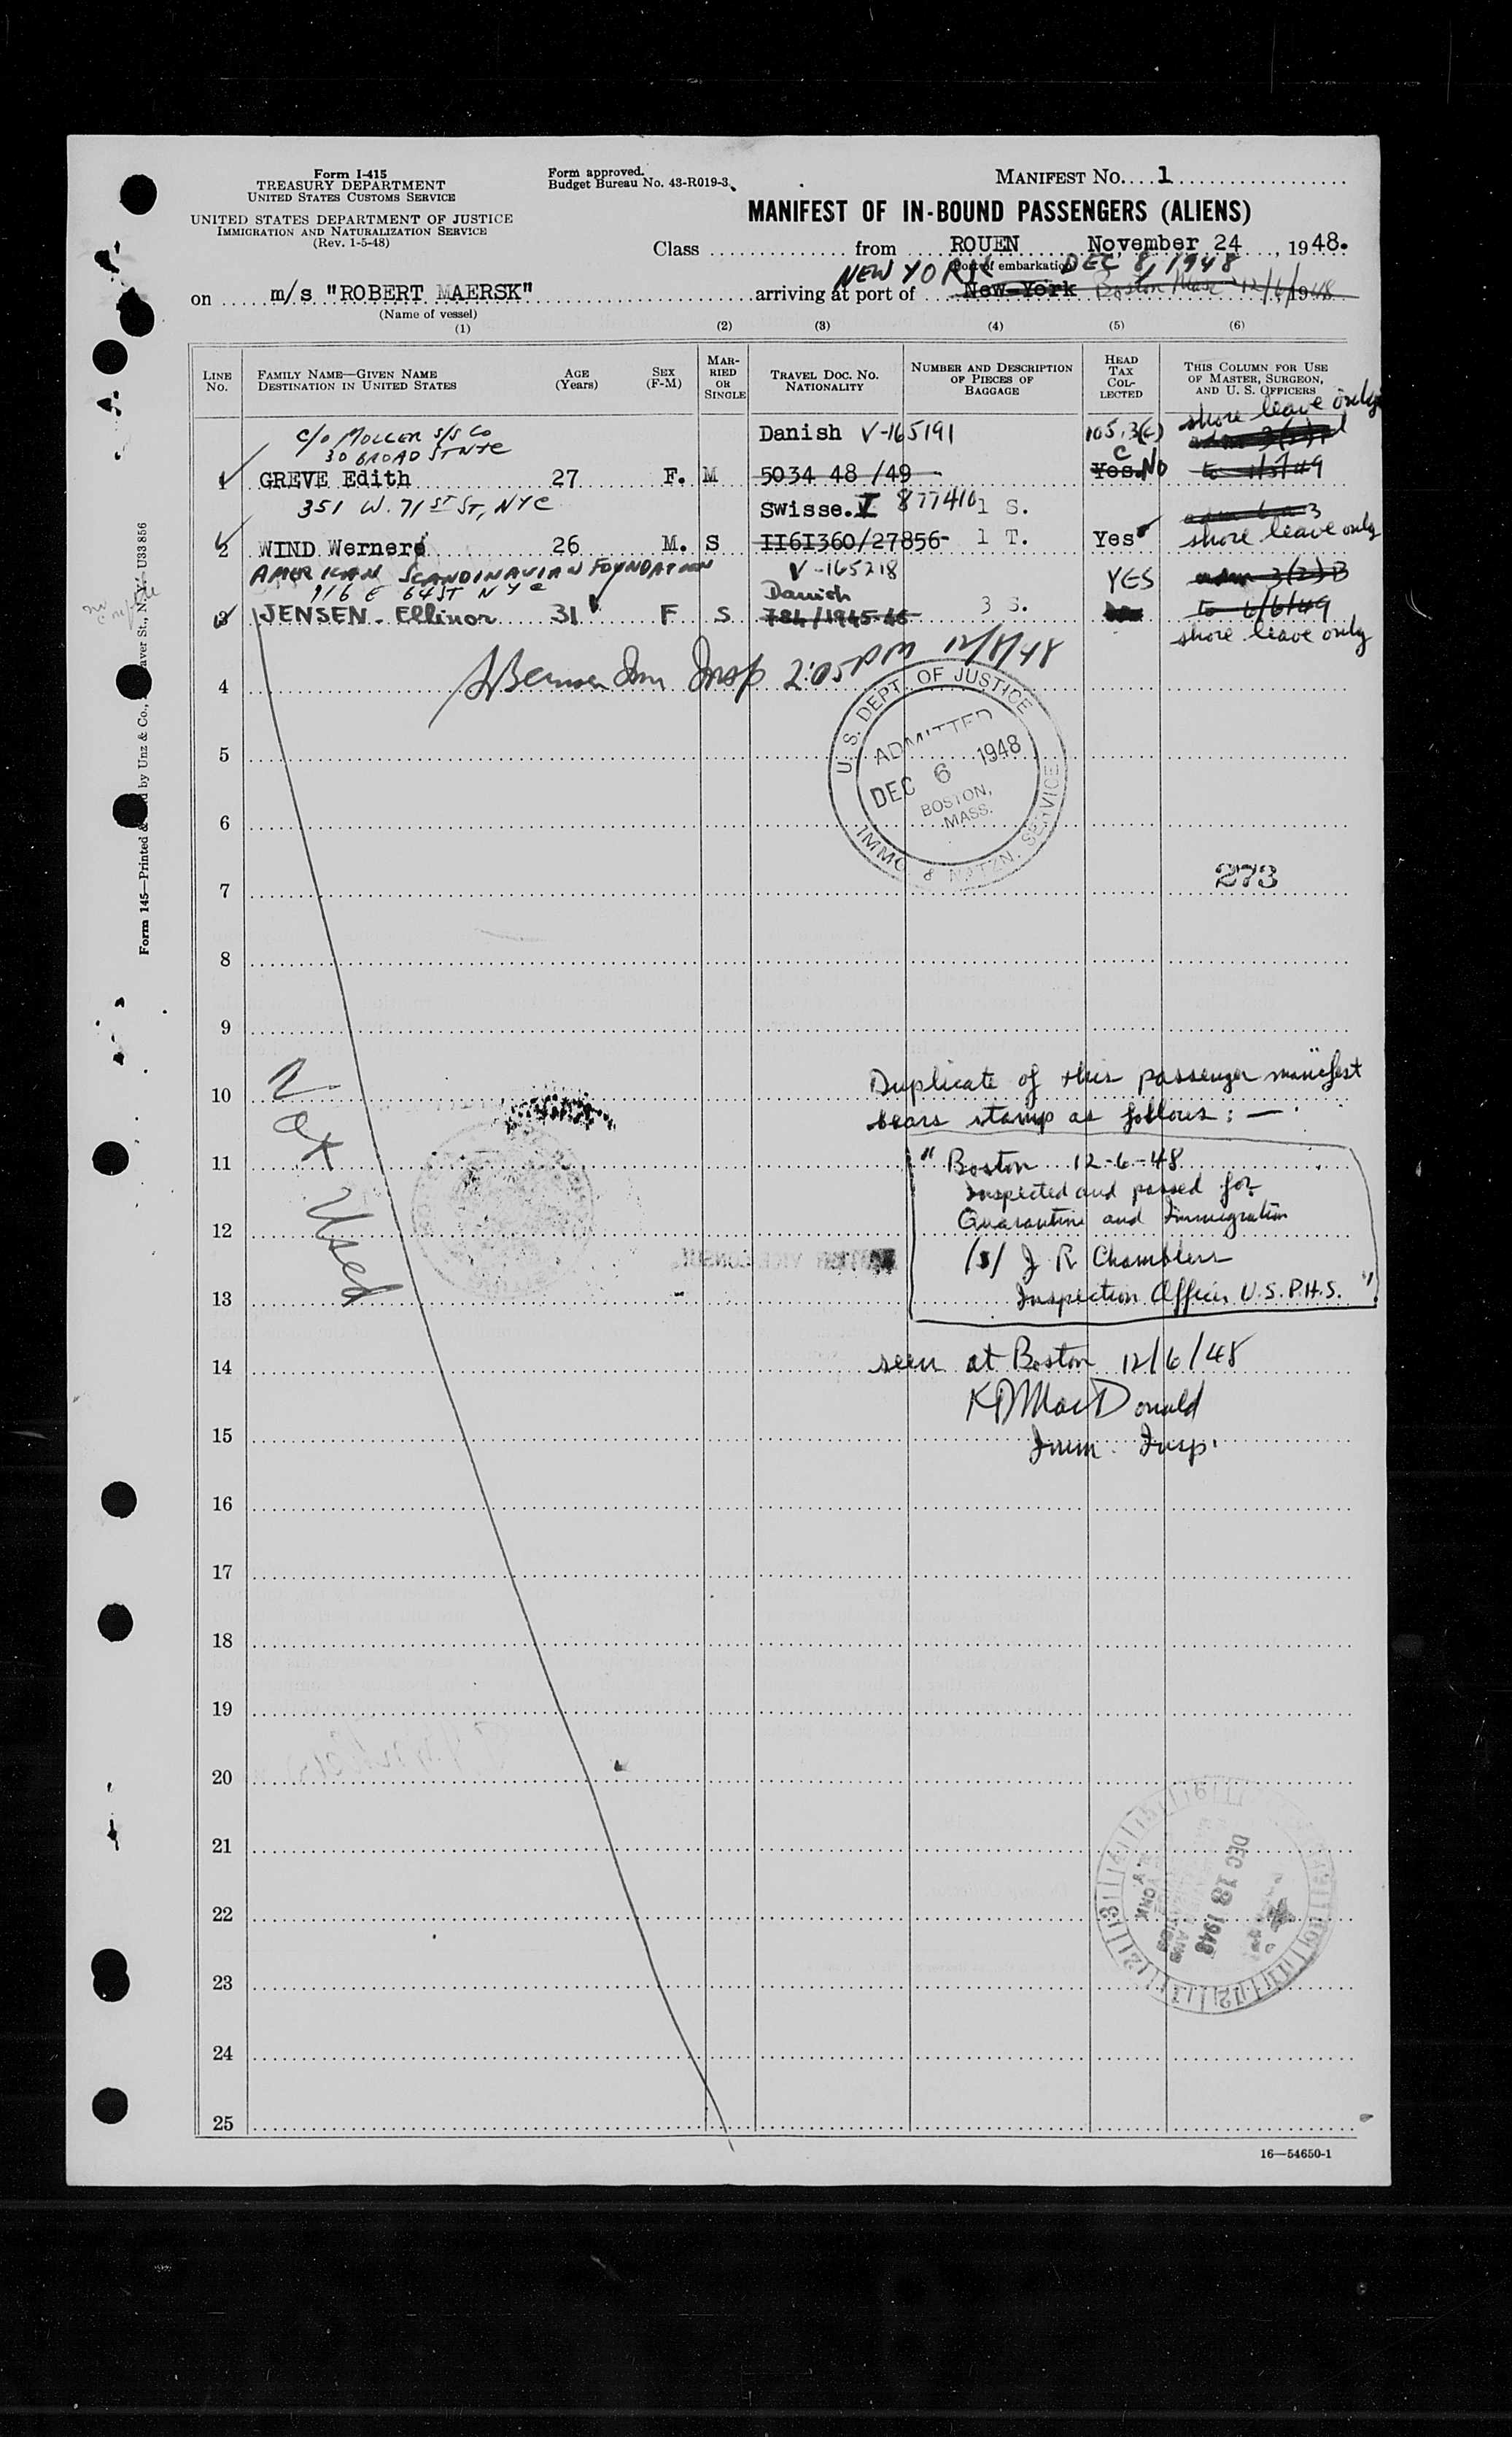 Form I-415
TREASURY DEPARTMENT
UNITED STATES CUSTOMS SERVICE
UNITED STATES DEPARTMENT OF JUSTICE
IMMIGRATION AND NATURALIZATION SERVICE
(Rev. 1-5-48)
Form approved.
Budget Bureau No. 43-R019-3.
MANIFEST NO. 1
MANIFEST OF IN-BOUND PASSENGERS (ALIENS)
Class from ROUEN November 24, 1948.
(Port of embarkation)
NEW YORK DEC 8, 1948
on m/s "ROBERT MAERSK" arriving at port of New-York Boston Mass 12/6/1948
(Name of vessel)
(1) (2) (3) (4) (5) (6)
LINE NO.
FAMILY NAME—GIVEN NAME
DESTINATION IN UNITED STATES
AGE
(Years)
SEX
(F-M)
MARRIED OR SINGLE
TRAVEL DOC. NO.
NATIONALITY
NUMBER AND DESCRIPTION OF PIECES OF BAGGAGE
HEAD TAX COLLECTED
THIS COLUMN FOR USE OF MASTER, SURGEON, AND U. S. OFFICERS
c/o MOLLER S/S Co Danish V-165191 105.3(c) shore leave only
30 BROAD ST NYC
1 GREVE Edith 27 F. M 5034 48 /49 Yes. No
351 W. 71 ST ST, NYC Swisse. V 877410 1 S.
2 WIND Werner 26 M. S II6I360/27856- 1 T. Yes shore leave only
AMERICAN SCANDINAVIAN FOUNDATION V-165218 YES adm 3(2) B
116 E 64 ST NYC Danish
3 JENSEN - Ellinor 31 F S 784/1945-46 3 S. to 6/6/49
shore leave only
Imm Insp 2:05 PM 12/8/48
4
U. S. DEPT. OF JUSTICE
ADMITTED
DEC 6 1948
BOSTON, MASS.
IMMG. & NATZN. SERVICE
5
6
273
7
8
9
Not Used
Duplicate of this passenger manifest
10
bears stamp as follows: —
11
"Boston 12-6-48
Inspected and passed for
Quarantine and Immigration
12
/s/ J R Chamblers
13
Inspection Officer U.S.P.H.S."
14
seen at Boston 12/6/48
K D MacDonald
15
Imm. Insp.
16
17
18
19
20
21
DEC 13 1948
22
23
24
25
16—54650-1
Form 145—Printed by Unz & Co., N.Y. U33856